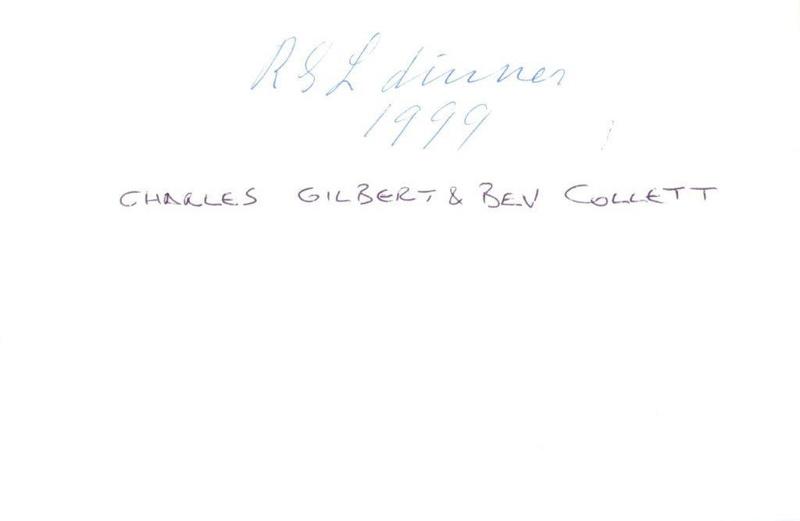 RSL dinner
1999
CHARLES GILBERT & BEV COLLETT